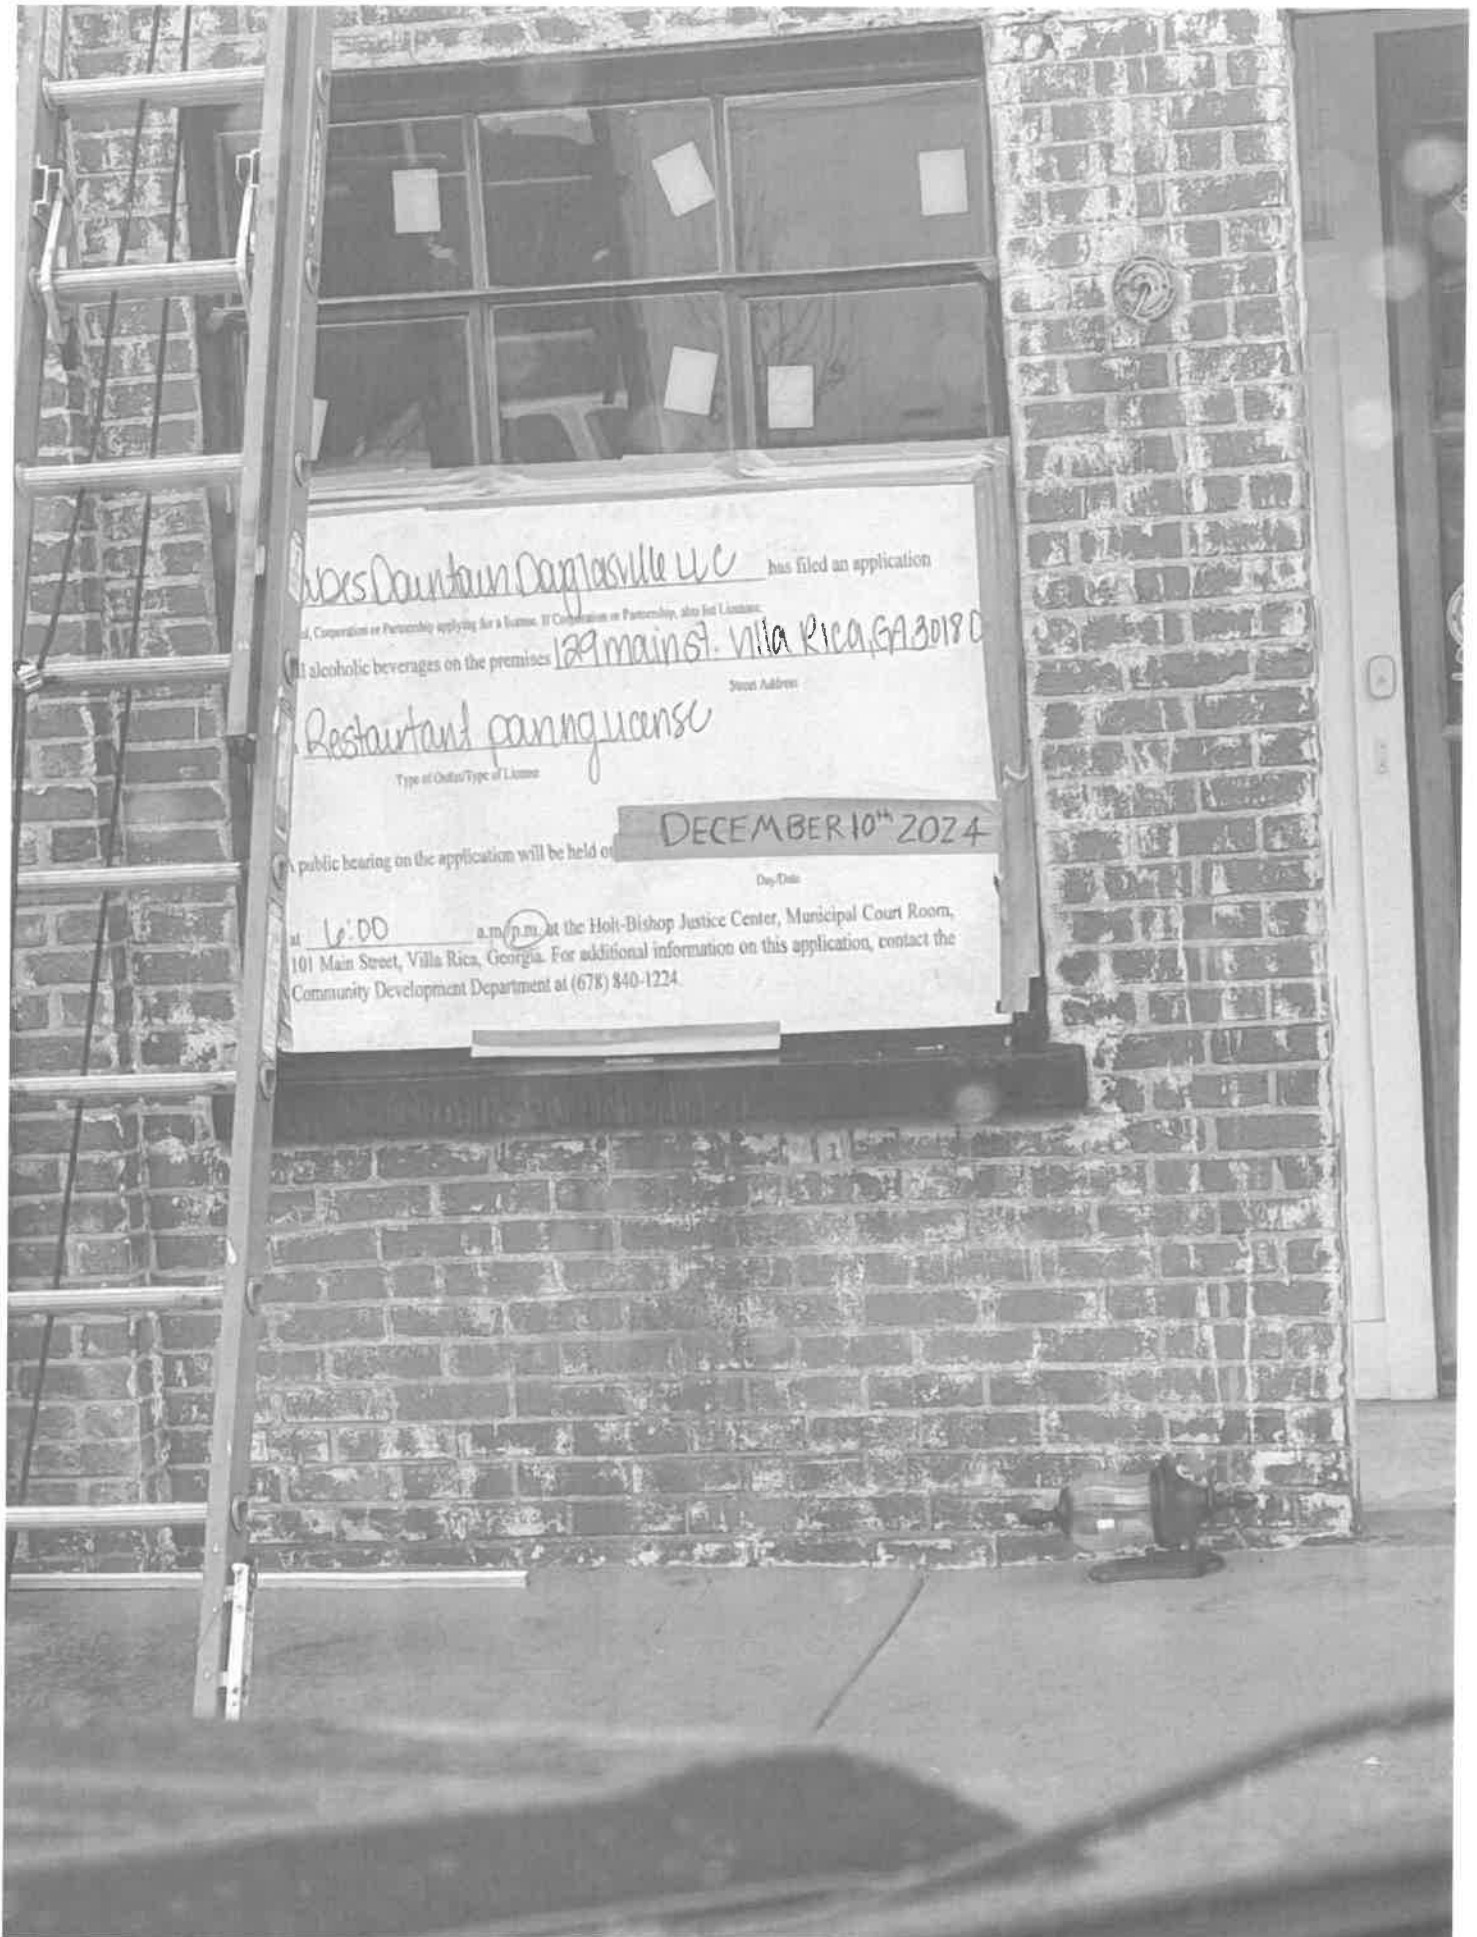 Downtown Douglasville LLC has filed an application
Corporation or Partnership applying for a license. If Corporation or Partnership, also list Licensee.
alcoholic beverages on the premises 129 main st. Villa Rica, GA 30180
Street Address
Restaurtant pouring license
Type of Outlet/Type of License
public hearing on the application will be held on DECEMBER 10th 2024
Day/Date
at 6:00 a.m/p.m. at the Holt-Bishop Justice Center, Municipal Court Room,
101 Main Street, Villa Rica, Georgia. For additional information on this application, contact the
Community Development Department at (678) 840-1224.